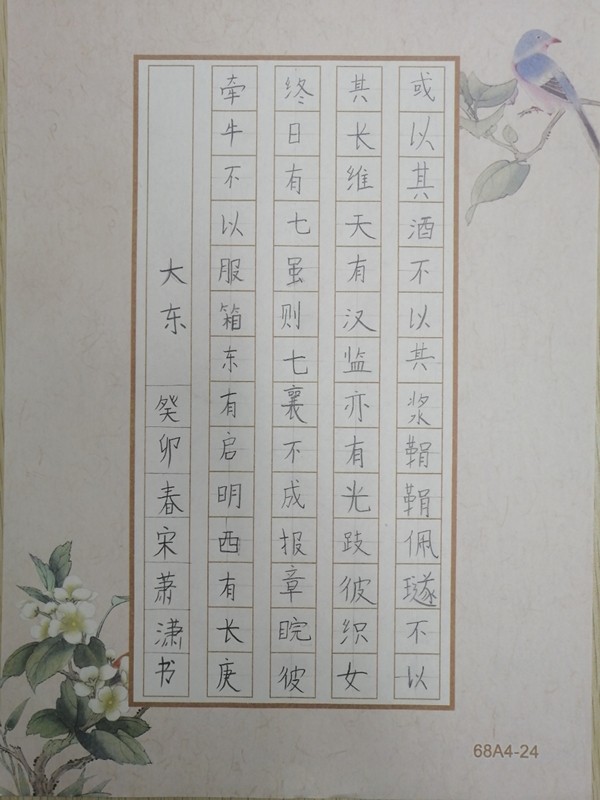 或以其酒不以其浆鞙鞙佩璲不以
其长维天有汉监亦有光跂彼织女
终日有七虽则七襄不成报章睆彼
牵牛不以服箱东有启明西有长庚
大东 癸卯春宋萧潇书
68A4-24